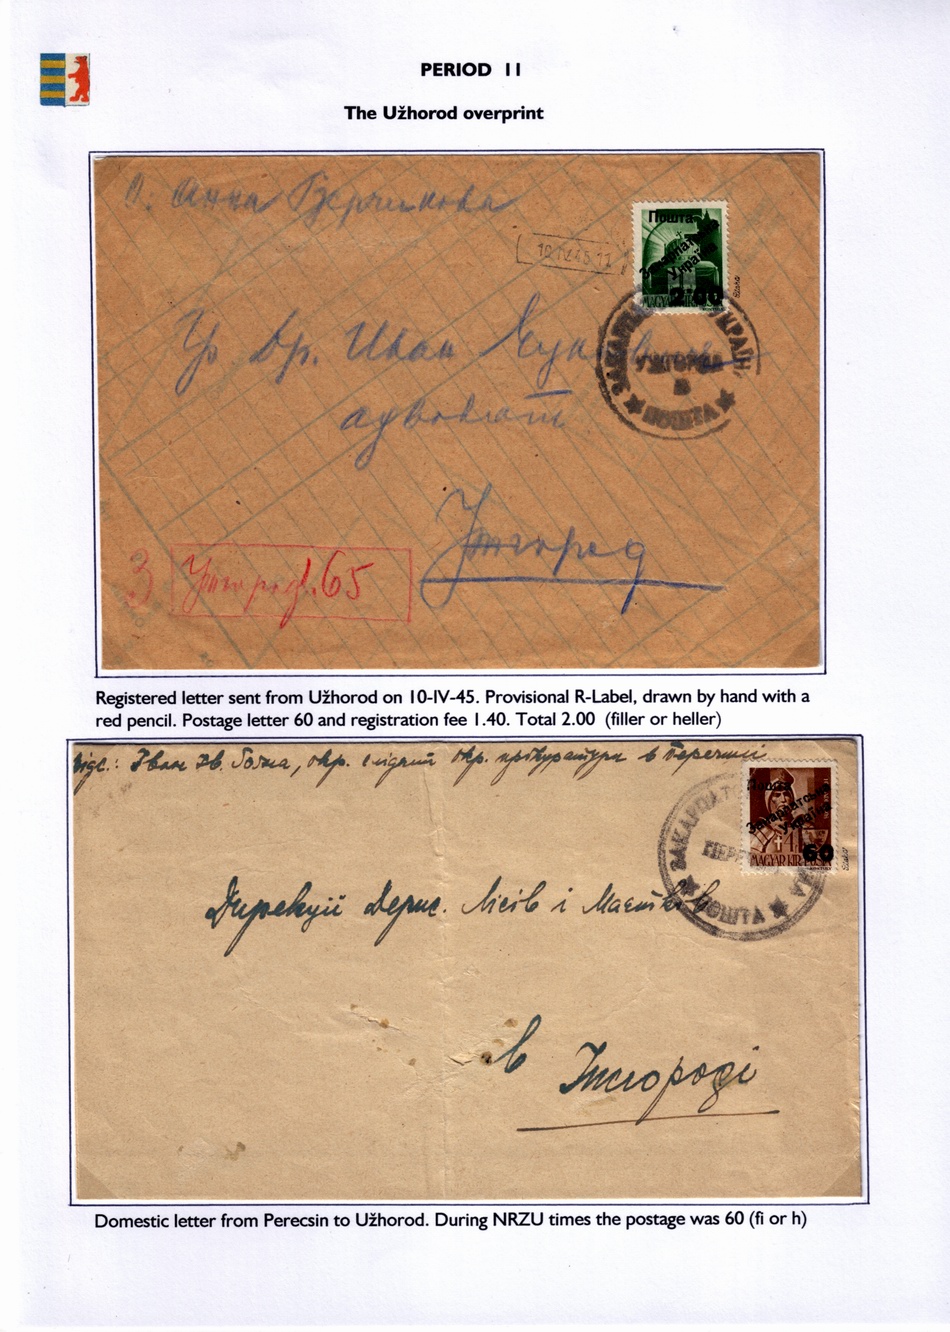 PERIOD 11
The Užhorod overprint
Анна
Пошта
Закарпатська
Україна
2·00
MAGYAR KIR. POSTA
10.IV.45.11
Др. Иван
УЖГОРОД
ПОШТА
адвокат
Ужгород
З Ужгород. 65
Registered letter sent from Užhorod on 10-IV-45. Provisional R-Label, drawn by hand with a
red pencil. Postage letter 60 and registration fee 1.40. Total 2.00 (filler or heller)
Іван Ів. окр. слідчий окр. прокуратури в Перечині
Пошта
Закарпатська
Україна
60
MAGYAR KIR. POSTA
ПОШТА
Дирекції Держ. Лісів і Маєтків
в
Ужгороді
Domestic letter from Perecsin to Užhorod. During NRZU times the postage was 60 (fi or h)